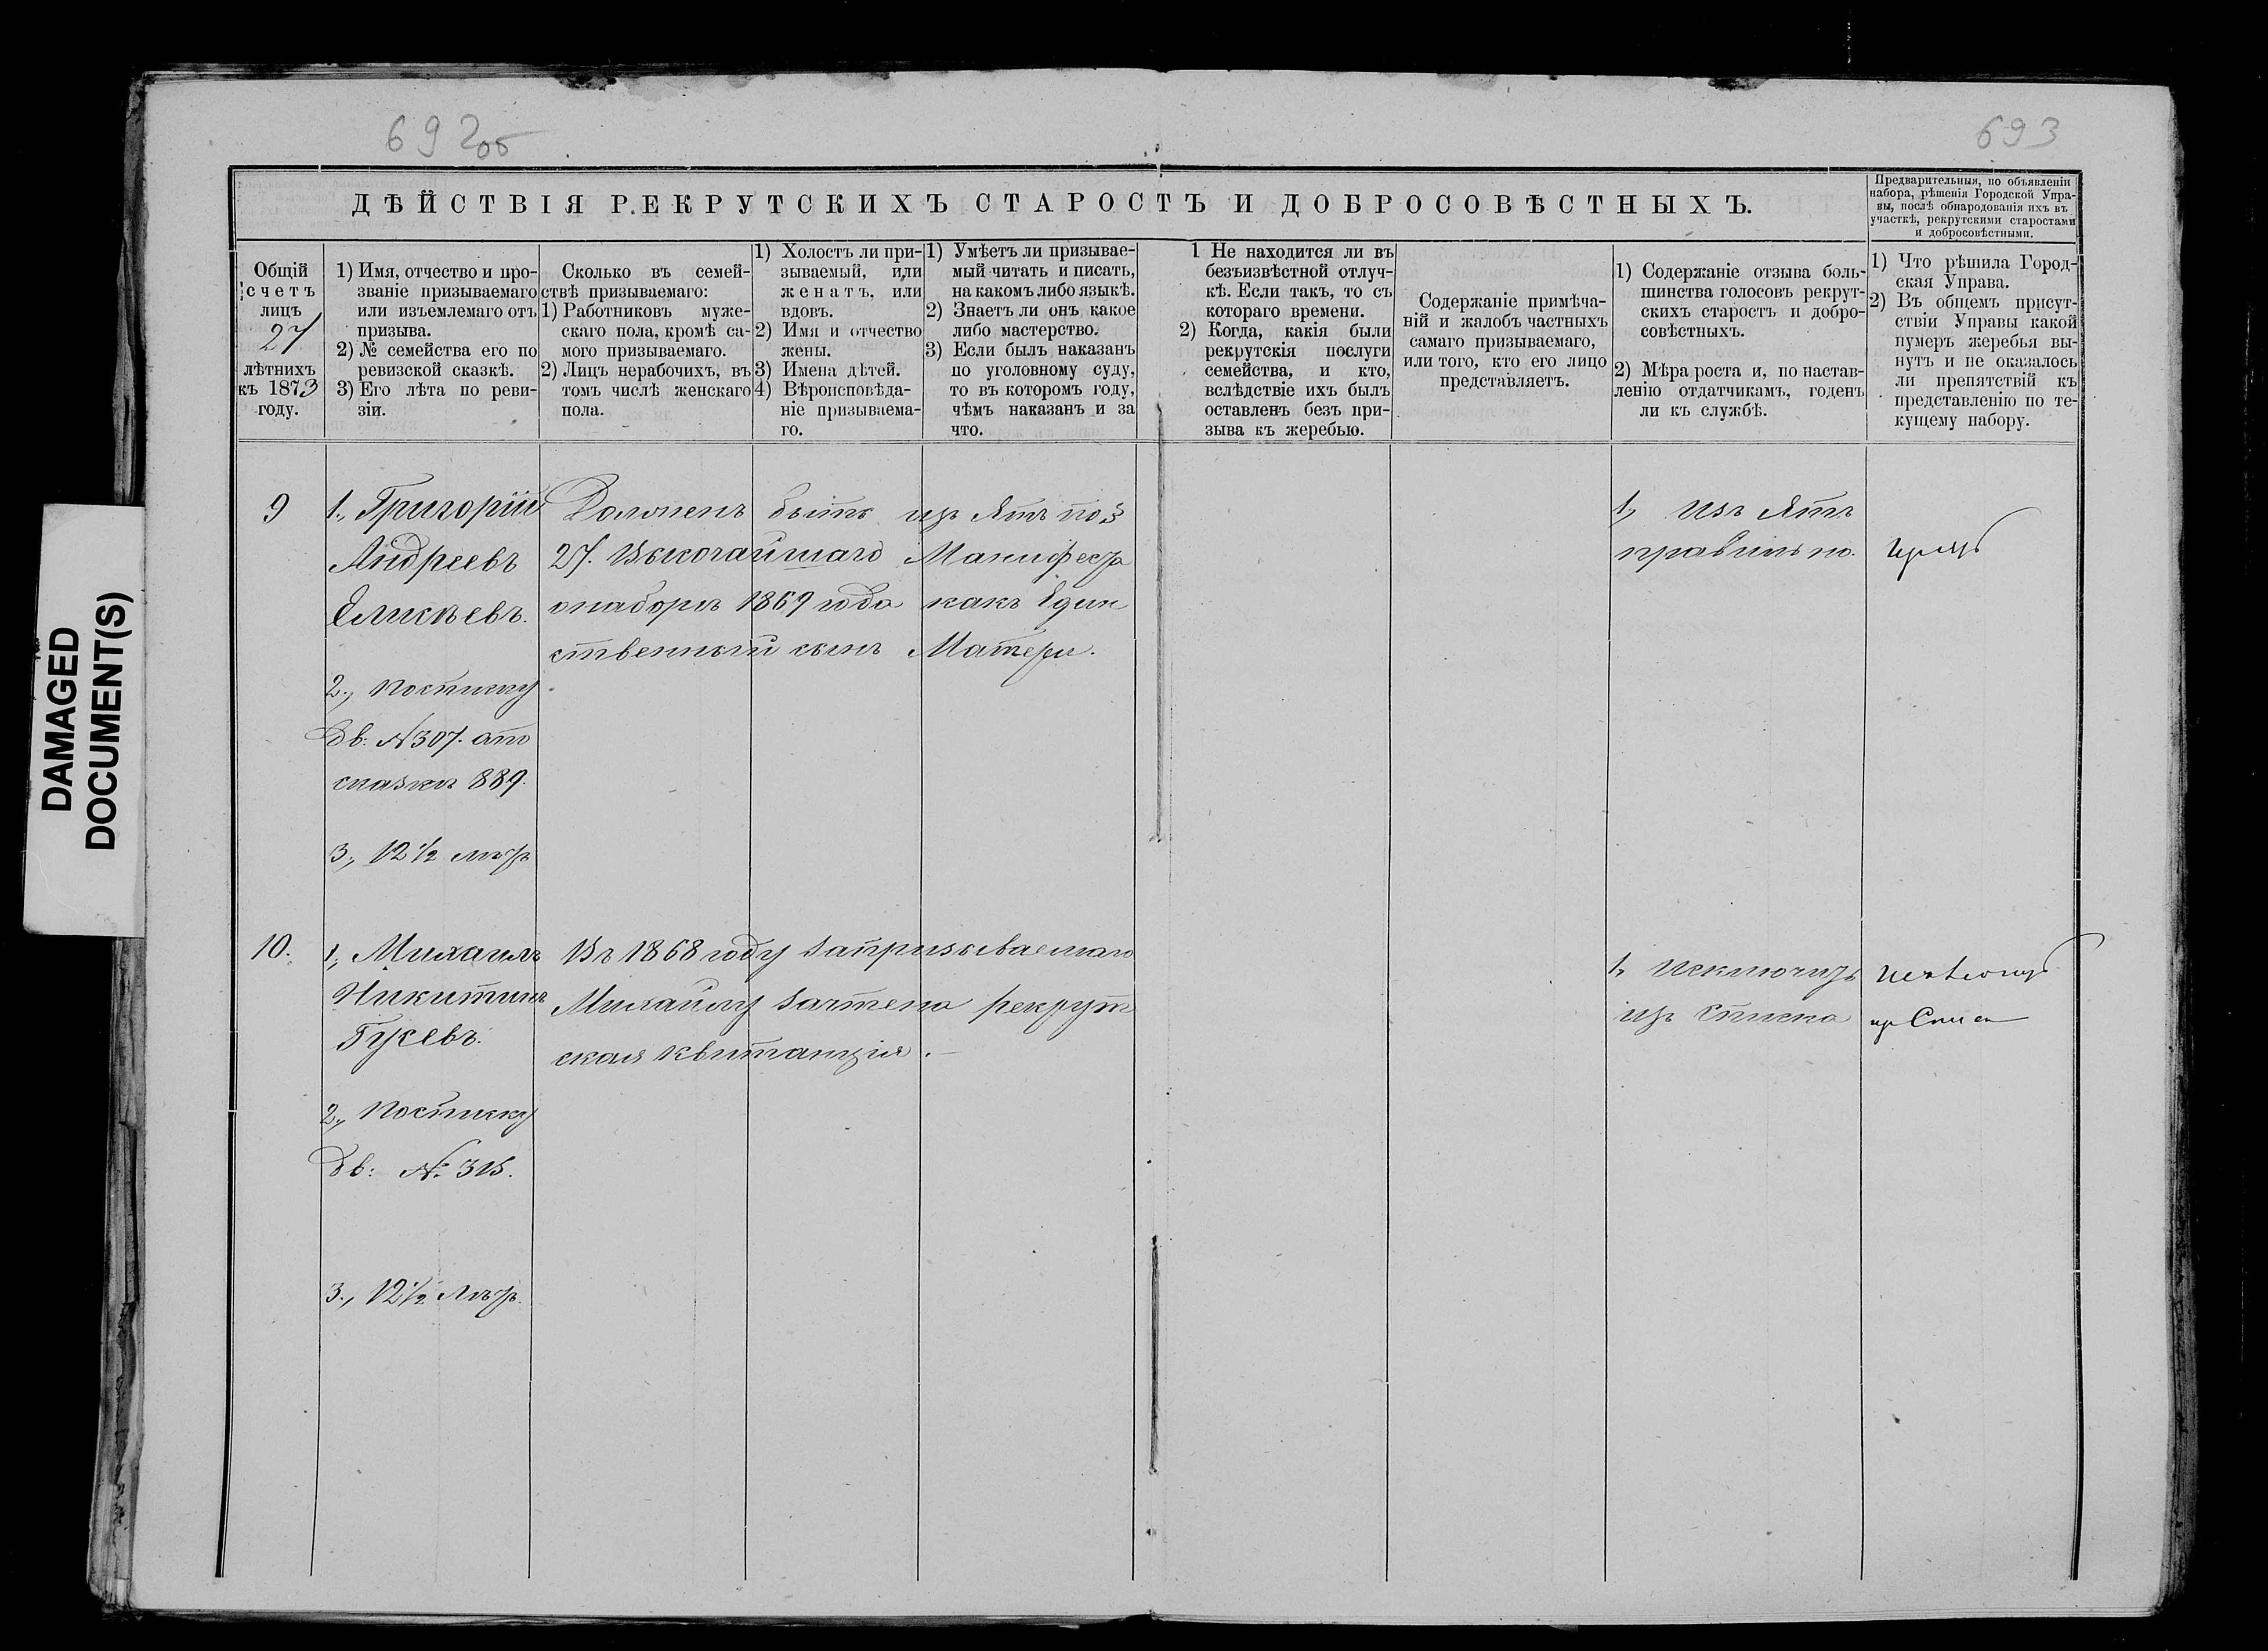 692об
693
DAMAGED
DOCUMENT(S)
ДѢЙСТВІЯ РЕКРУТСКИХЪ СТАРОСТЪ И ДОБРОСОВѢСТНЫХЪ.
Предварительныя, по объявленіи
набора, рѣшенія Городской Упра-
вы, послѣ обнародованія ихъ въ
участкѣ, рекрутскими старостами
и добросовѣстными.
Общій
счетъ
лицъ
27
лѣтнихъ
къ 1873
году.
1) Имя, отчество и про-
званіе призываемаго
или изъемлемаго отъ
призыва.
2) № семейства его по
ревизской сказкѣ.
3) Его лѣта по реви-
зіи.
Сколько въ семей-
ствѣ призываемаго:
1) Работниковъ муже-
скаго пола, кромѣ са-
мого призываемаго.
2) Лицъ нерабочихъ, въ
томъ числѣ женскаго
пола.
1) Холостъ ли при-
зываемый, или
женатъ, или
вдовъ.
2) Имя и отчество
жены.
3) Имена дѣтей.
4) Вѣроисповѣда-
ніе призываема-
го.
1) Умѣетъ ли призывае-
мый читать и писать,
на какомъ либо языкѣ.
2) Знаетъ ли онъ какое
либо мастерство.
3) Если былъ наказанъ
по уголовному суду,
то въ которомъ году,
чѣмъ наказанъ и за
что.
1 Не находится ли въ
безъизвѣстной отлуч-
кѣ. Если такъ, то съ
котораго времени.
2) Когда, какія были
рекрутскія послуги
семейства, и кто,
вслѣдствіе ихъ былъ
оставленъ безъ при-
зыва къ жеребью.
Содержаніе примѣча-
ній и жалобъ частныхъ
самаго призываемаго,
или того, кто его лицо
представляетъ.
1) Содержаніе отзыва боль-
шинства голосовъ рекрут-
скихъ старостъ и добро-
совѣстныхъ.
2) Мѣра роста и, по настав-
ленію отдатчикамъ, годенъ
ли къ службѣ.
1) Что рѣшила Город-
ская Управа.
2) Въ общемъ присут-
ствіи Управы какой
нумеръ жеребья вы-
нутъ и не оказалось
ли препятствій къ
представленію по те-
кущему набору.
9
1., Григорій
Андреевъ
Еликѣевъ.
2., по списку
Дв: №307. а по
сказкѣ 889.
3., 12 1/2 лѣтъ
Долженъ быть изъятъ по §
27. Высочайшаго Манифеста
о наборѣ 1869 года какъ един
ственный сынъ Матери.
1., изъятъ
правильно.
10.
1., Михаилъ
Никитинъ
Гусевъ.
2., по списку
Дв: №. 315.
3., 12 1/2 лѣтъ.
Въ 1868 году за призываемаго
Михайлу зачтена рекрут
ская квитанція.
1, исключить
изъ списка